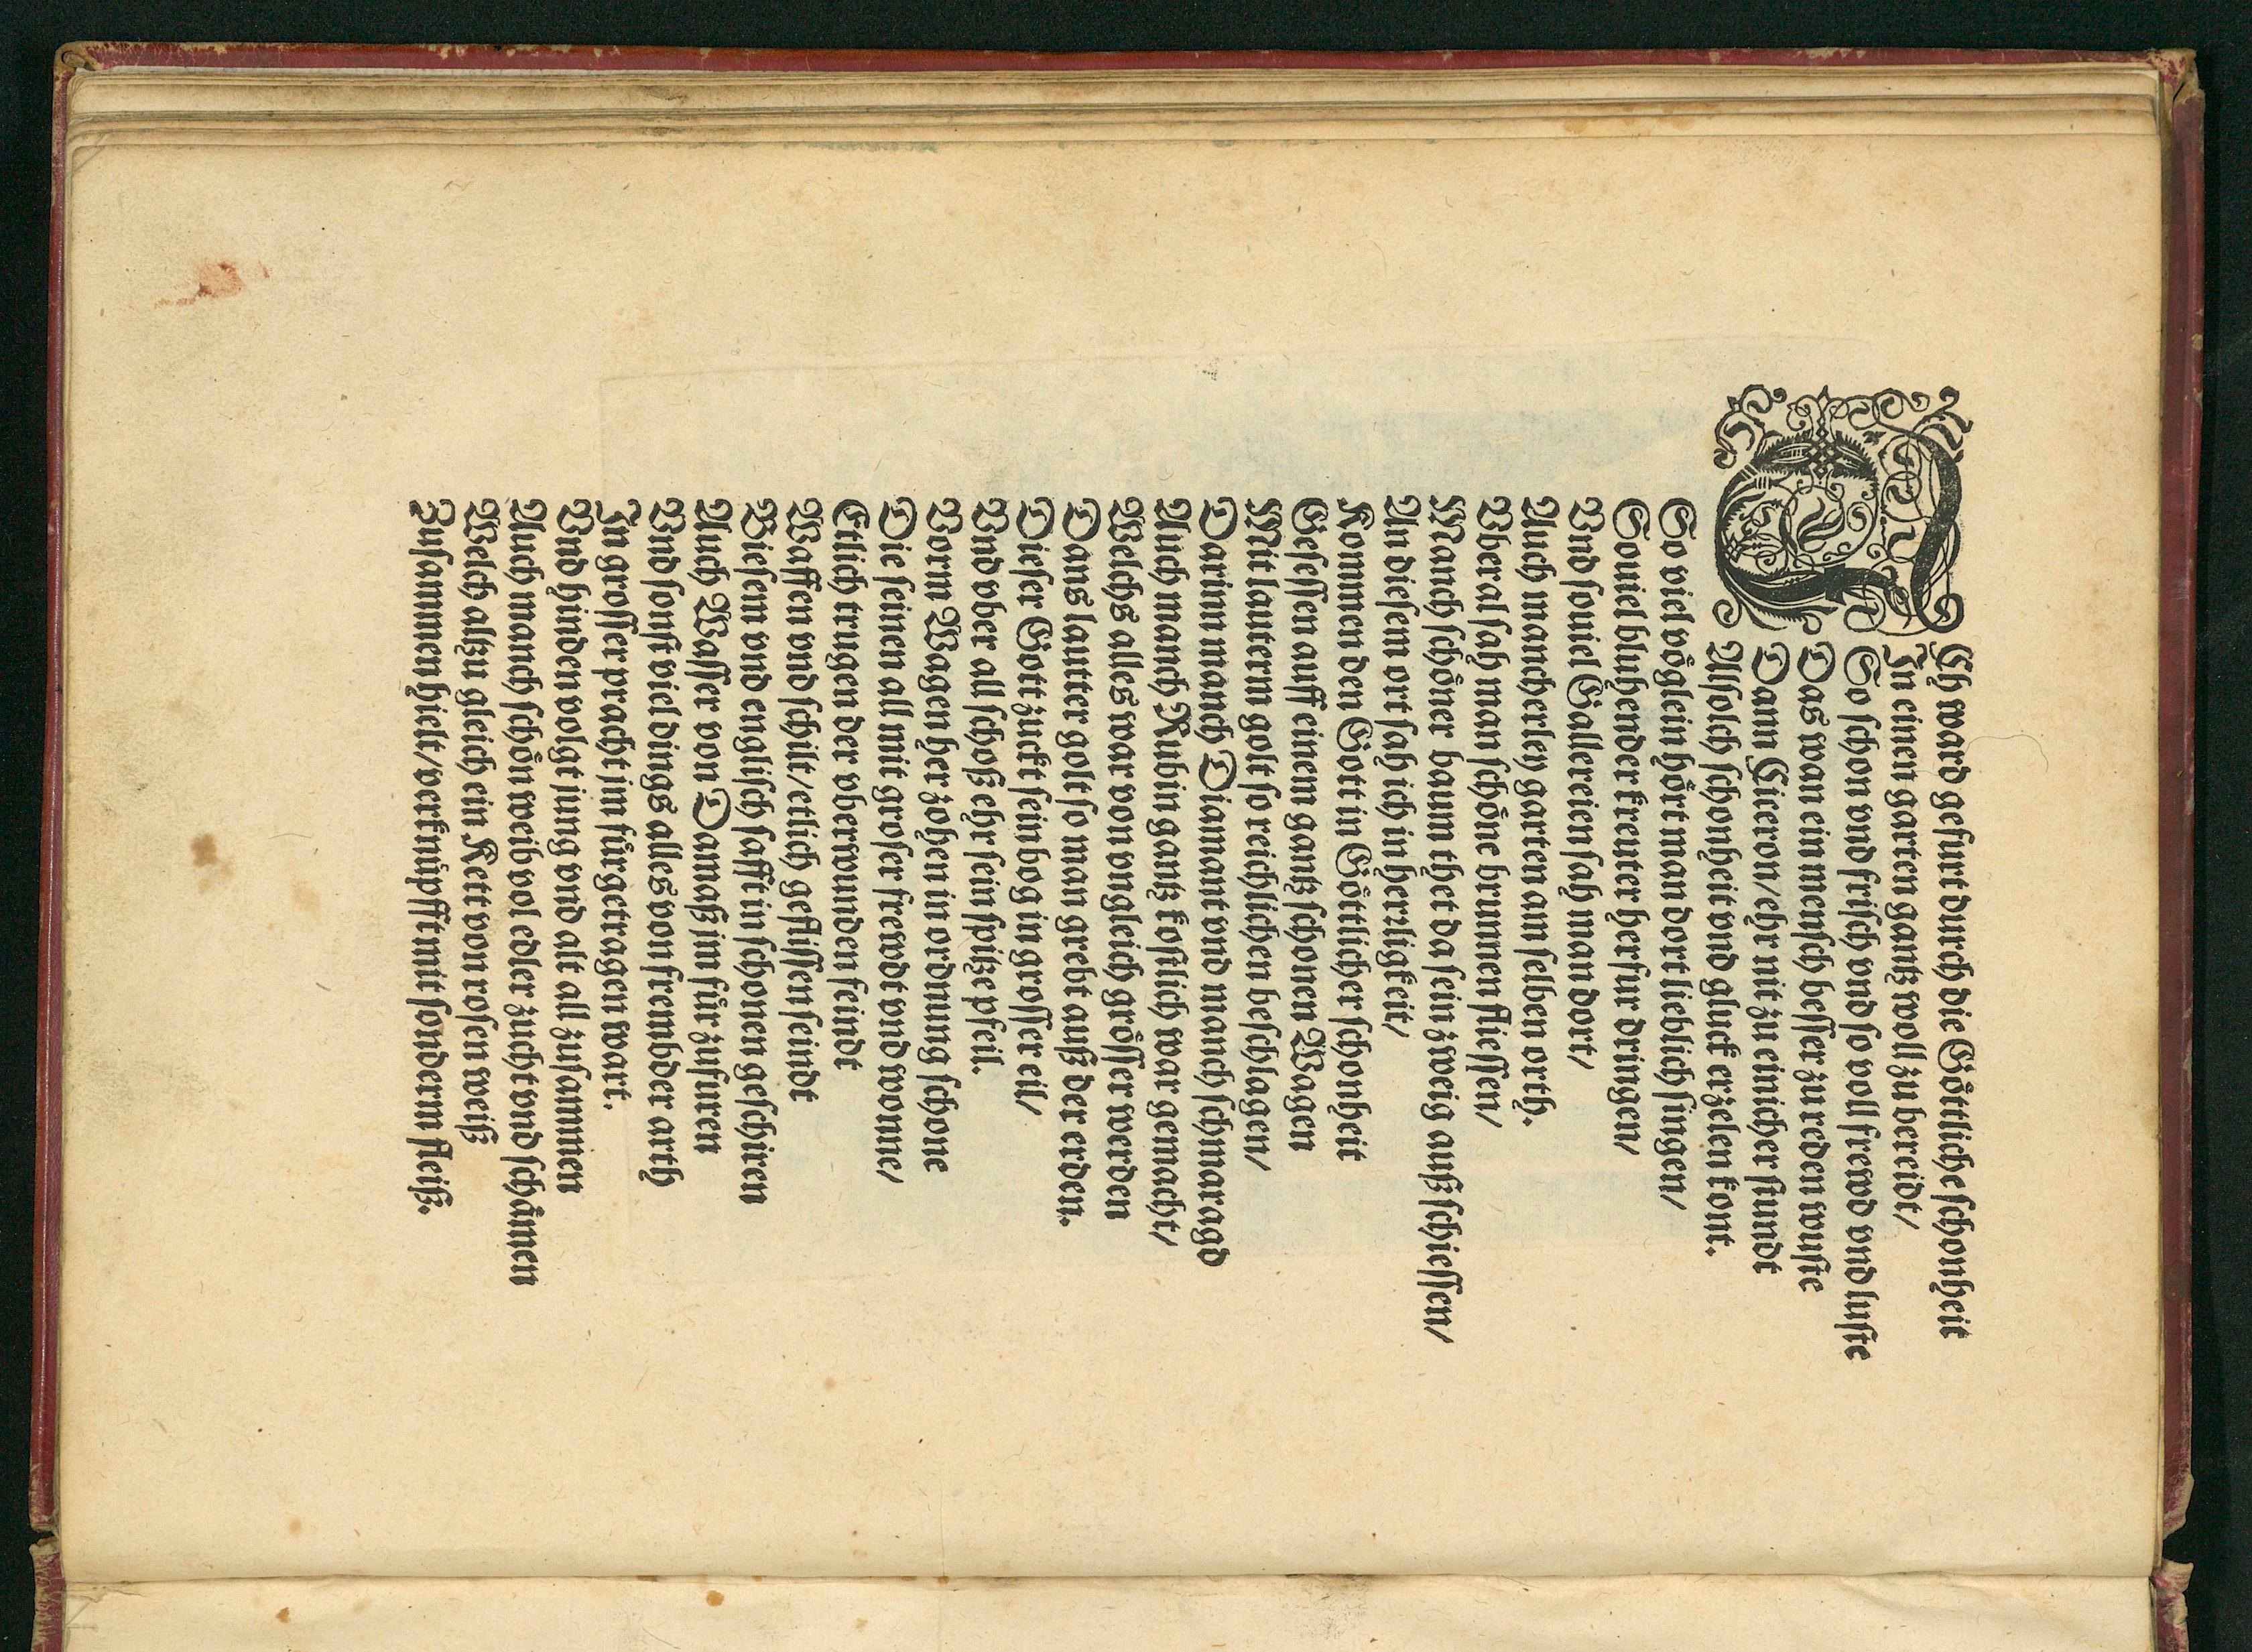 ICh ward gefurt durch die Göttliche schonheit
In einen garten gantz woll zu bereidt/
So schon vnd frisch vnd so voll frewd vnd luste
Das wan ein mensch besser zu reden wuste
Dann Ciceron/ ehr mit zu einicher stundt
All solch schonheit vnd gluck erzelen kont.
So viel vöglein hört man dort lieblich singen/
Souiel bluhender kreuter herfur dringen/
Vnd souiel Gallereien sah man dort/
Auch mancherley garten am selben orth.
Vberal sah man schöne brunnen fliessen/
Manch schöner baum thet da sein zweig auß schiessen/
An diesem ort sah ich in herrligkeit/
Kommen den Gott in Göttlicher schonheit
Gesessen auff einem gantz schonen Wagen
Mit lauterm golt so reichlichen beschlagen/
Darinn manch Diamant vnd manch schmaragd
Auch manch Rubin gantz kostlich war gemacht/
Welchs alles war von vngleich grösser werden
Dans lautter golt so man grebt auß der erden.
Dieser Gott zuckt sein bog in grosser eil/
Vnd vber all schoß ehr sein spitze pfeil.
Vorm Wagen her zohen in ordnung schone
Die seinen all mit groser frewdt vnd wonne/
Etlich trugen der vberwunden feindt
Waffen vnd schilt/ etlich geflissen seindt
Diesem vnd englisch safft in schonen geschiren
Auch Wasser von Damaß im für zufuren
Vnd sonst viel dings alles von frembder arth
In grosser pracht im fürgetragen wart.
Vnd hinden volgt jung vnd alt all zusammen
Auch manch schön weib vol edler zucht vnd schämen
Welch alzu gleich ein Kett von rosen weiß
Zusammen hielt/ verknüpfft mit sonderm fleiß.